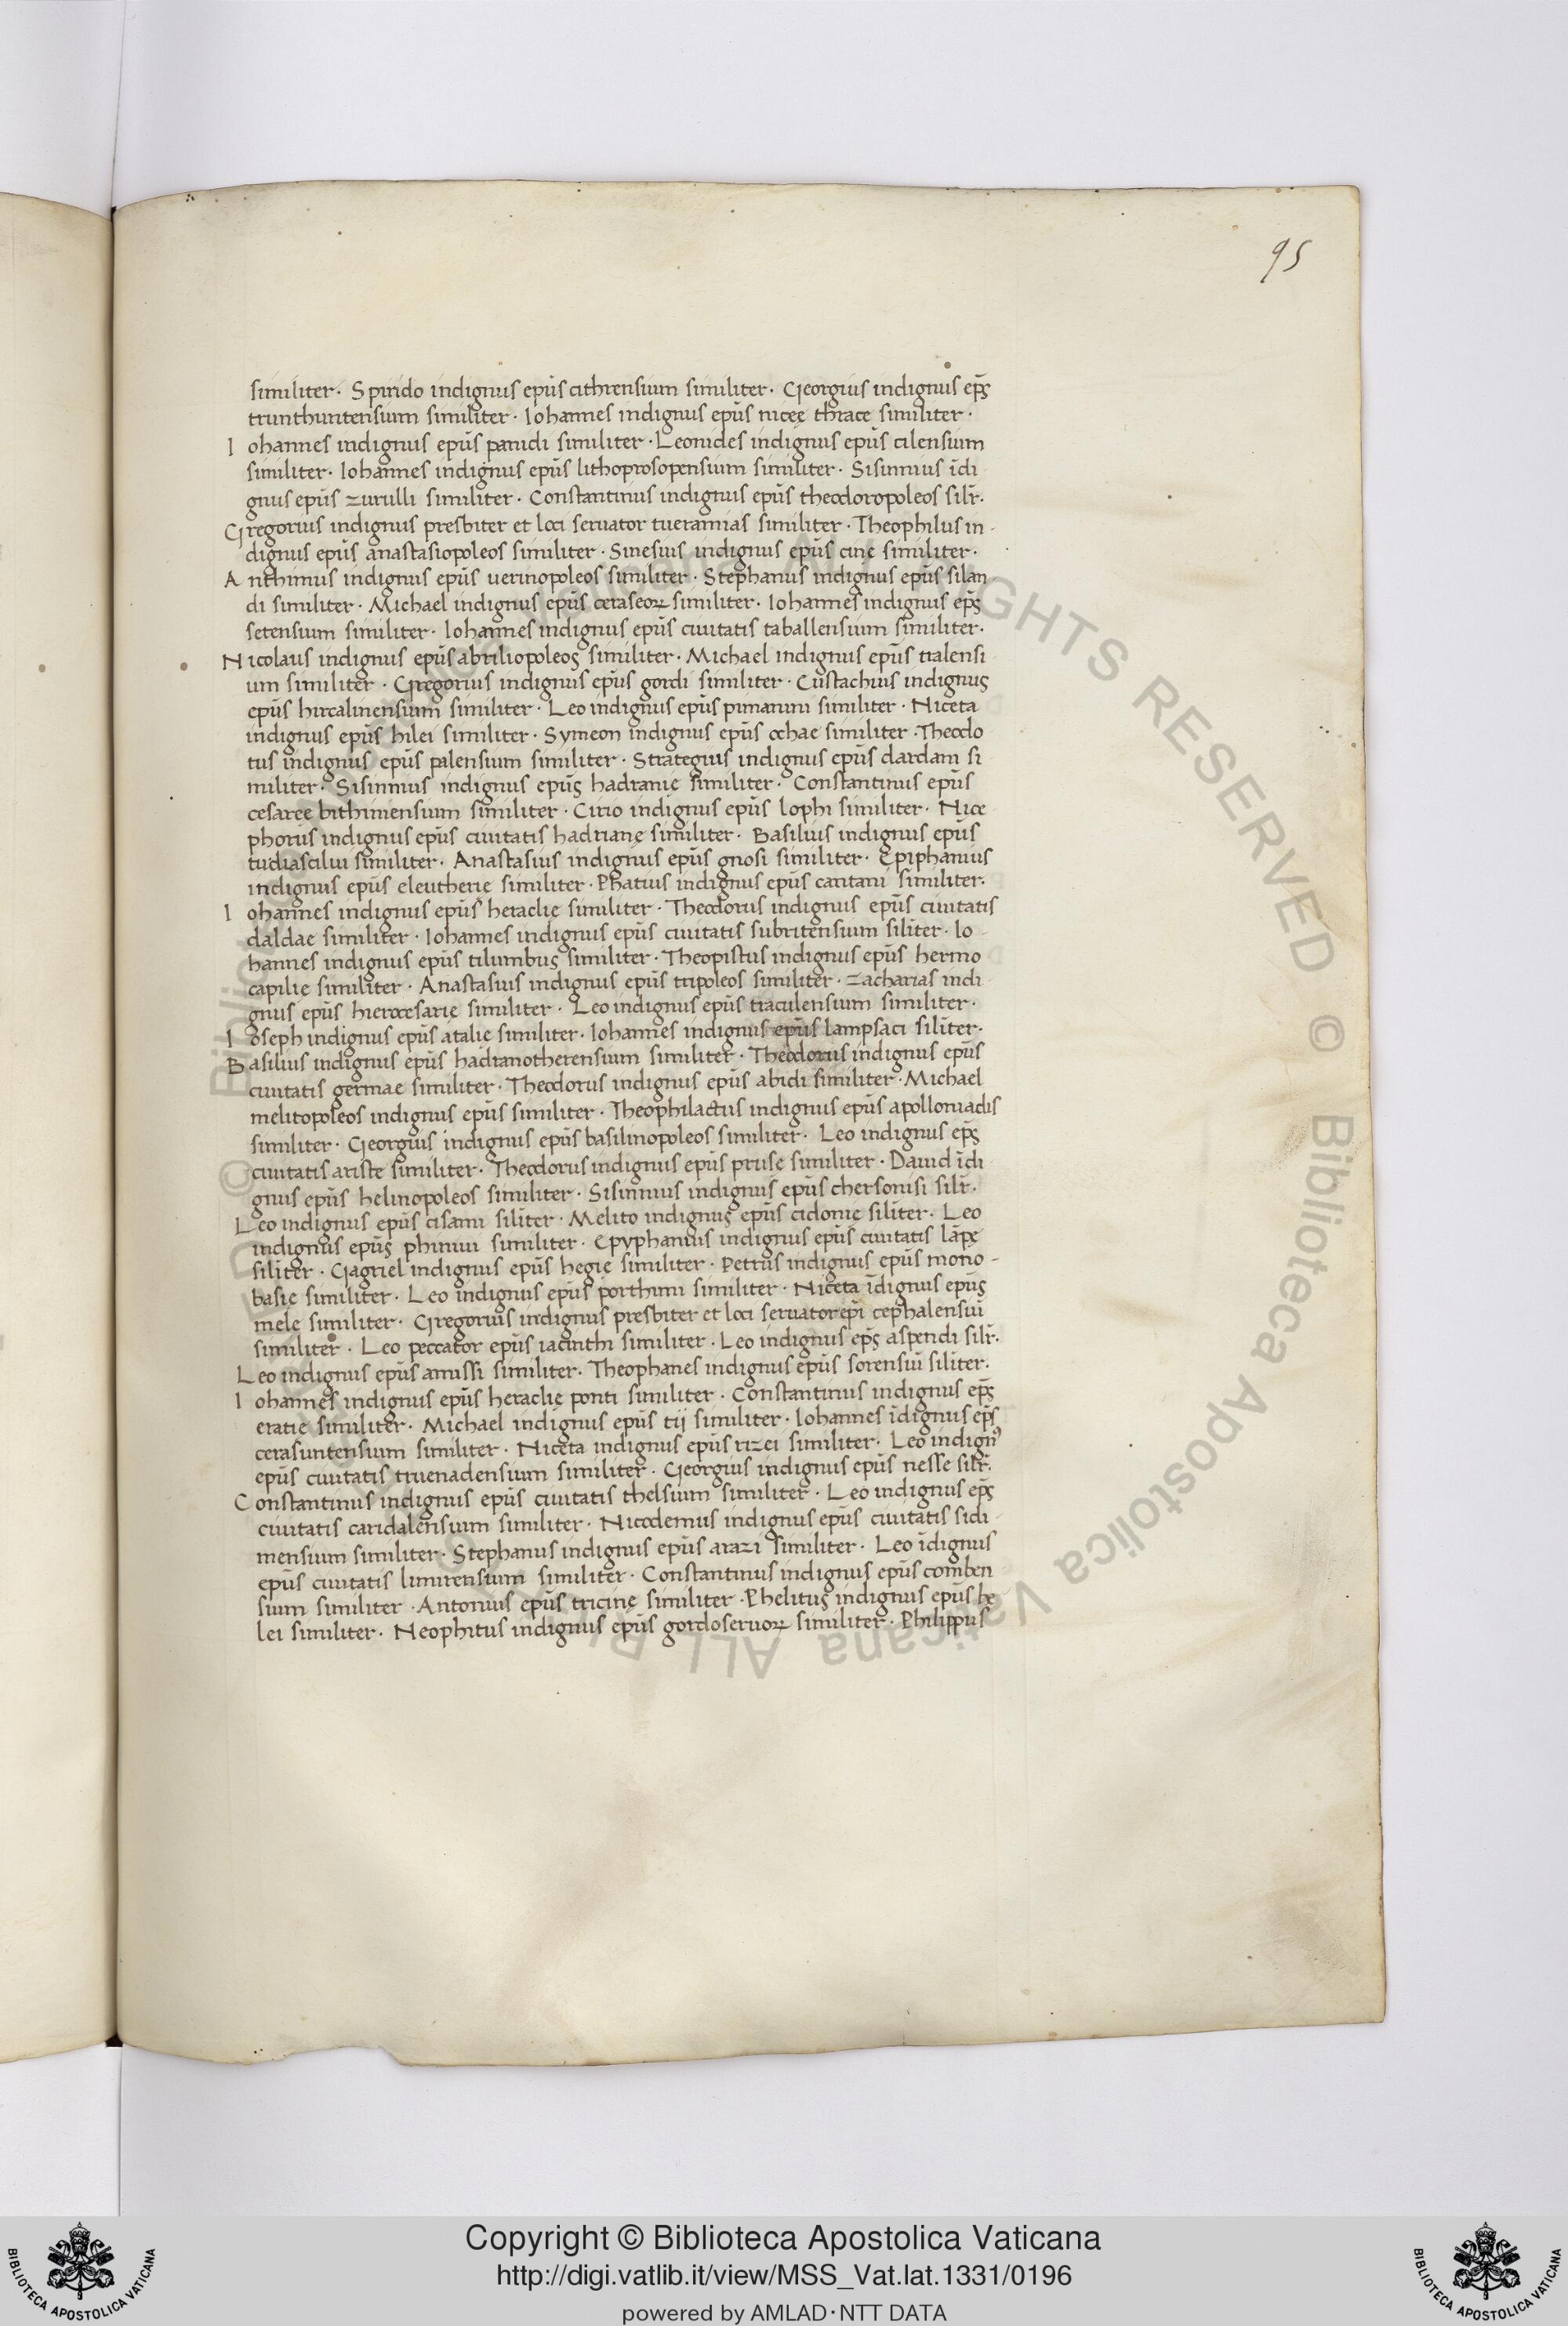 95
similiter · Spirido indignus ep̄us cithrensium similiter · Georgius indignus ep̄s
trunthuntensium similiter · Iohannes indignus ep̄us niceę thrace similiter ·
Iohannes indignus ep̄us panidi similiter · Leonides indignus ep̄us cilensium
similiter · Iohannes indignus ep̄us lithoprosopensium similiter · Sisinnius īdi
gnus ep̄us zurulli similiter · Constantinus indignus ep̄us theodoropoleos silr̄ ·
Gregorius indignus presbiter et loci seruator tueramias similiter · Theophilus in-
dignus ep̄us anastasiopoleos similiter · Sinesius indignus ep̄us cinę similiter ·
Anthimus indignus ep̄us uerinopoleos similiter · Stephanus indignus ep̄us silan
di similiter · Michael indignus ep̄us ceraseoꝝ similiter · Iohannes indignus ep̄s
setensium similiter · Iohannes indignus ep̄us ciuitatis taballensium similiter ·
Nicolaus indignus ep̄us abriliopoleos similiter · Michael indignus ep̄us tralensi
um similiter · Gregorius indignus ep̄us gordi similiter · Eustachius indignus
ep̄us hircalinensium similiter · Leo indignus ep̄us pimanini similiter · Niceta
indignus ep̄us hilei similiter · Symeon indignus ep̄us ochae similiter · Theodo
tus indignus ep̄us palensium similiter · Strategius indignus ep̄us dardam si
militer · Sisinnius indignus ep̄us hadranię similiter · Constantinus ep̄us
cesareę bithiniensium similiter · Cirio indignus ep̄us lophi similiter · Nice
phorus indignus ep̄us ciuitatis hadrianę similiter · Basilius indignus ep̄us
tudiascilui similiter · Anastasius indignus ep̄us gnosi similiter · Epiphanius
indignus ep̄us eleutherię similiter · Phatius indignus ep̄us cantani similiter ·
Iohannes indignus ep̄us heraclię similiter · Theodorus indignus ep̄us ciuitatis
daldae similiter · Iohannes indignus ep̄us ciuitatis subritensium silīter · Io
hannes indignus ep̄us tilumbus similiter · Theopistus indignus ep̄us hermo
capilię similiter · Anastasius indignus ep̄us tripoleos similiter · Zacharias indi
gnus ep̄us hierocesarię similiter · Leo indignus ep̄us traculensium similiter ·
Ioseph indignus ep̄us atalię similiter · Iohannes indignus ep̄us lampsaci silīter ·
Basilius indignus ep̄us hadranotherensium similiter · Theodorus indignus ep̄us
ciuitatis germae similiter · Theodorus indignus ep̄us abidi similiter · Michael
melitopoleos indignus ep̄us similiter · Theophilactus indignus ep̄us apolloniadis
similiter · Georgius indignus ep̄us basilinopoleos similiter · Leo indignus ep̄s
ciuitatis ariste similiter · Theodorus indignus ep̄us prusę similiter · Dauid īdi
gnus ep̄us helinopoleos similiter · Sisinnius indignus ep̄us chersonisi silr̄ ·
Leo indignus ep̄us cisami silīter · Melito indignus ep̄us cidonię silīter · Leo
indignus ep̄us phinui similiter · Epyphanius indignus ep̄us ciuitatis lāpę
silīter · Gagriel indignus ep̄us hegię similiter · Petrus indignus ep̄us mono-
basię similiter · Leo indignus ep̄us porthmi similiter · Niceta īdignus ep̄us
mele similiter · Gregorius indignus presbiter et loci seruator ep̄i cephalensiū
similiter · Leo peccator ep̄us iacinthi similiter · Leo indignus ep̄s aspendi silr̄ ·
Leo indignus ep̄us amissi similiter · Theophanes indignus ep̄us sorensiū silīter ·
Iohannes indignus ep̄us heraclię ponti similiter · Constantinus indignus ep̄s
eratię similiter · Michael indignus ep̄us tij similiter · Iohannes īdignus ep̄s
cerasuntensium similiter · Niceta indignus ep̄us rizei similiter · Leo indign᾽
ep̄us ciuitatis truenadensium similiter · Georgius indignus ep̄us nesse silr̄ ·
Constantinus indignus ep̄us ciuitatis thelsium similiter · Leo indignus ep̄s
ciuitatis caridalensium similiter · Nicodemus indignus ep̄us ciuitatis sidi-
mensium similiter · Stephanus indignus ep̄us arazi similiter · Leo īdignus
ep̄us ciuitatis limirensium similiter · Constantinus indignus ep̄us comben
sium similiter · Antonius ep̄us tricinę similiter · Phelitus indignus ep̄us hę
lei similiter · Neophitus indignus ep̄us gordoseruoꝝ similiter · Philippus
© Biblioteca Apostolica Vaticana ALL RIGHTS RESERVED
BIBLIOTECA APOSTOLICA VATICANA
Copyright © Biblioteca Apostolica Vaticana
http://digi.vatlib.it/view/MSS_Vat.lat.1331/0196
powered by AMLAD·NTT DATA
BIBLIOTECA APOSTOLICA VATICANA